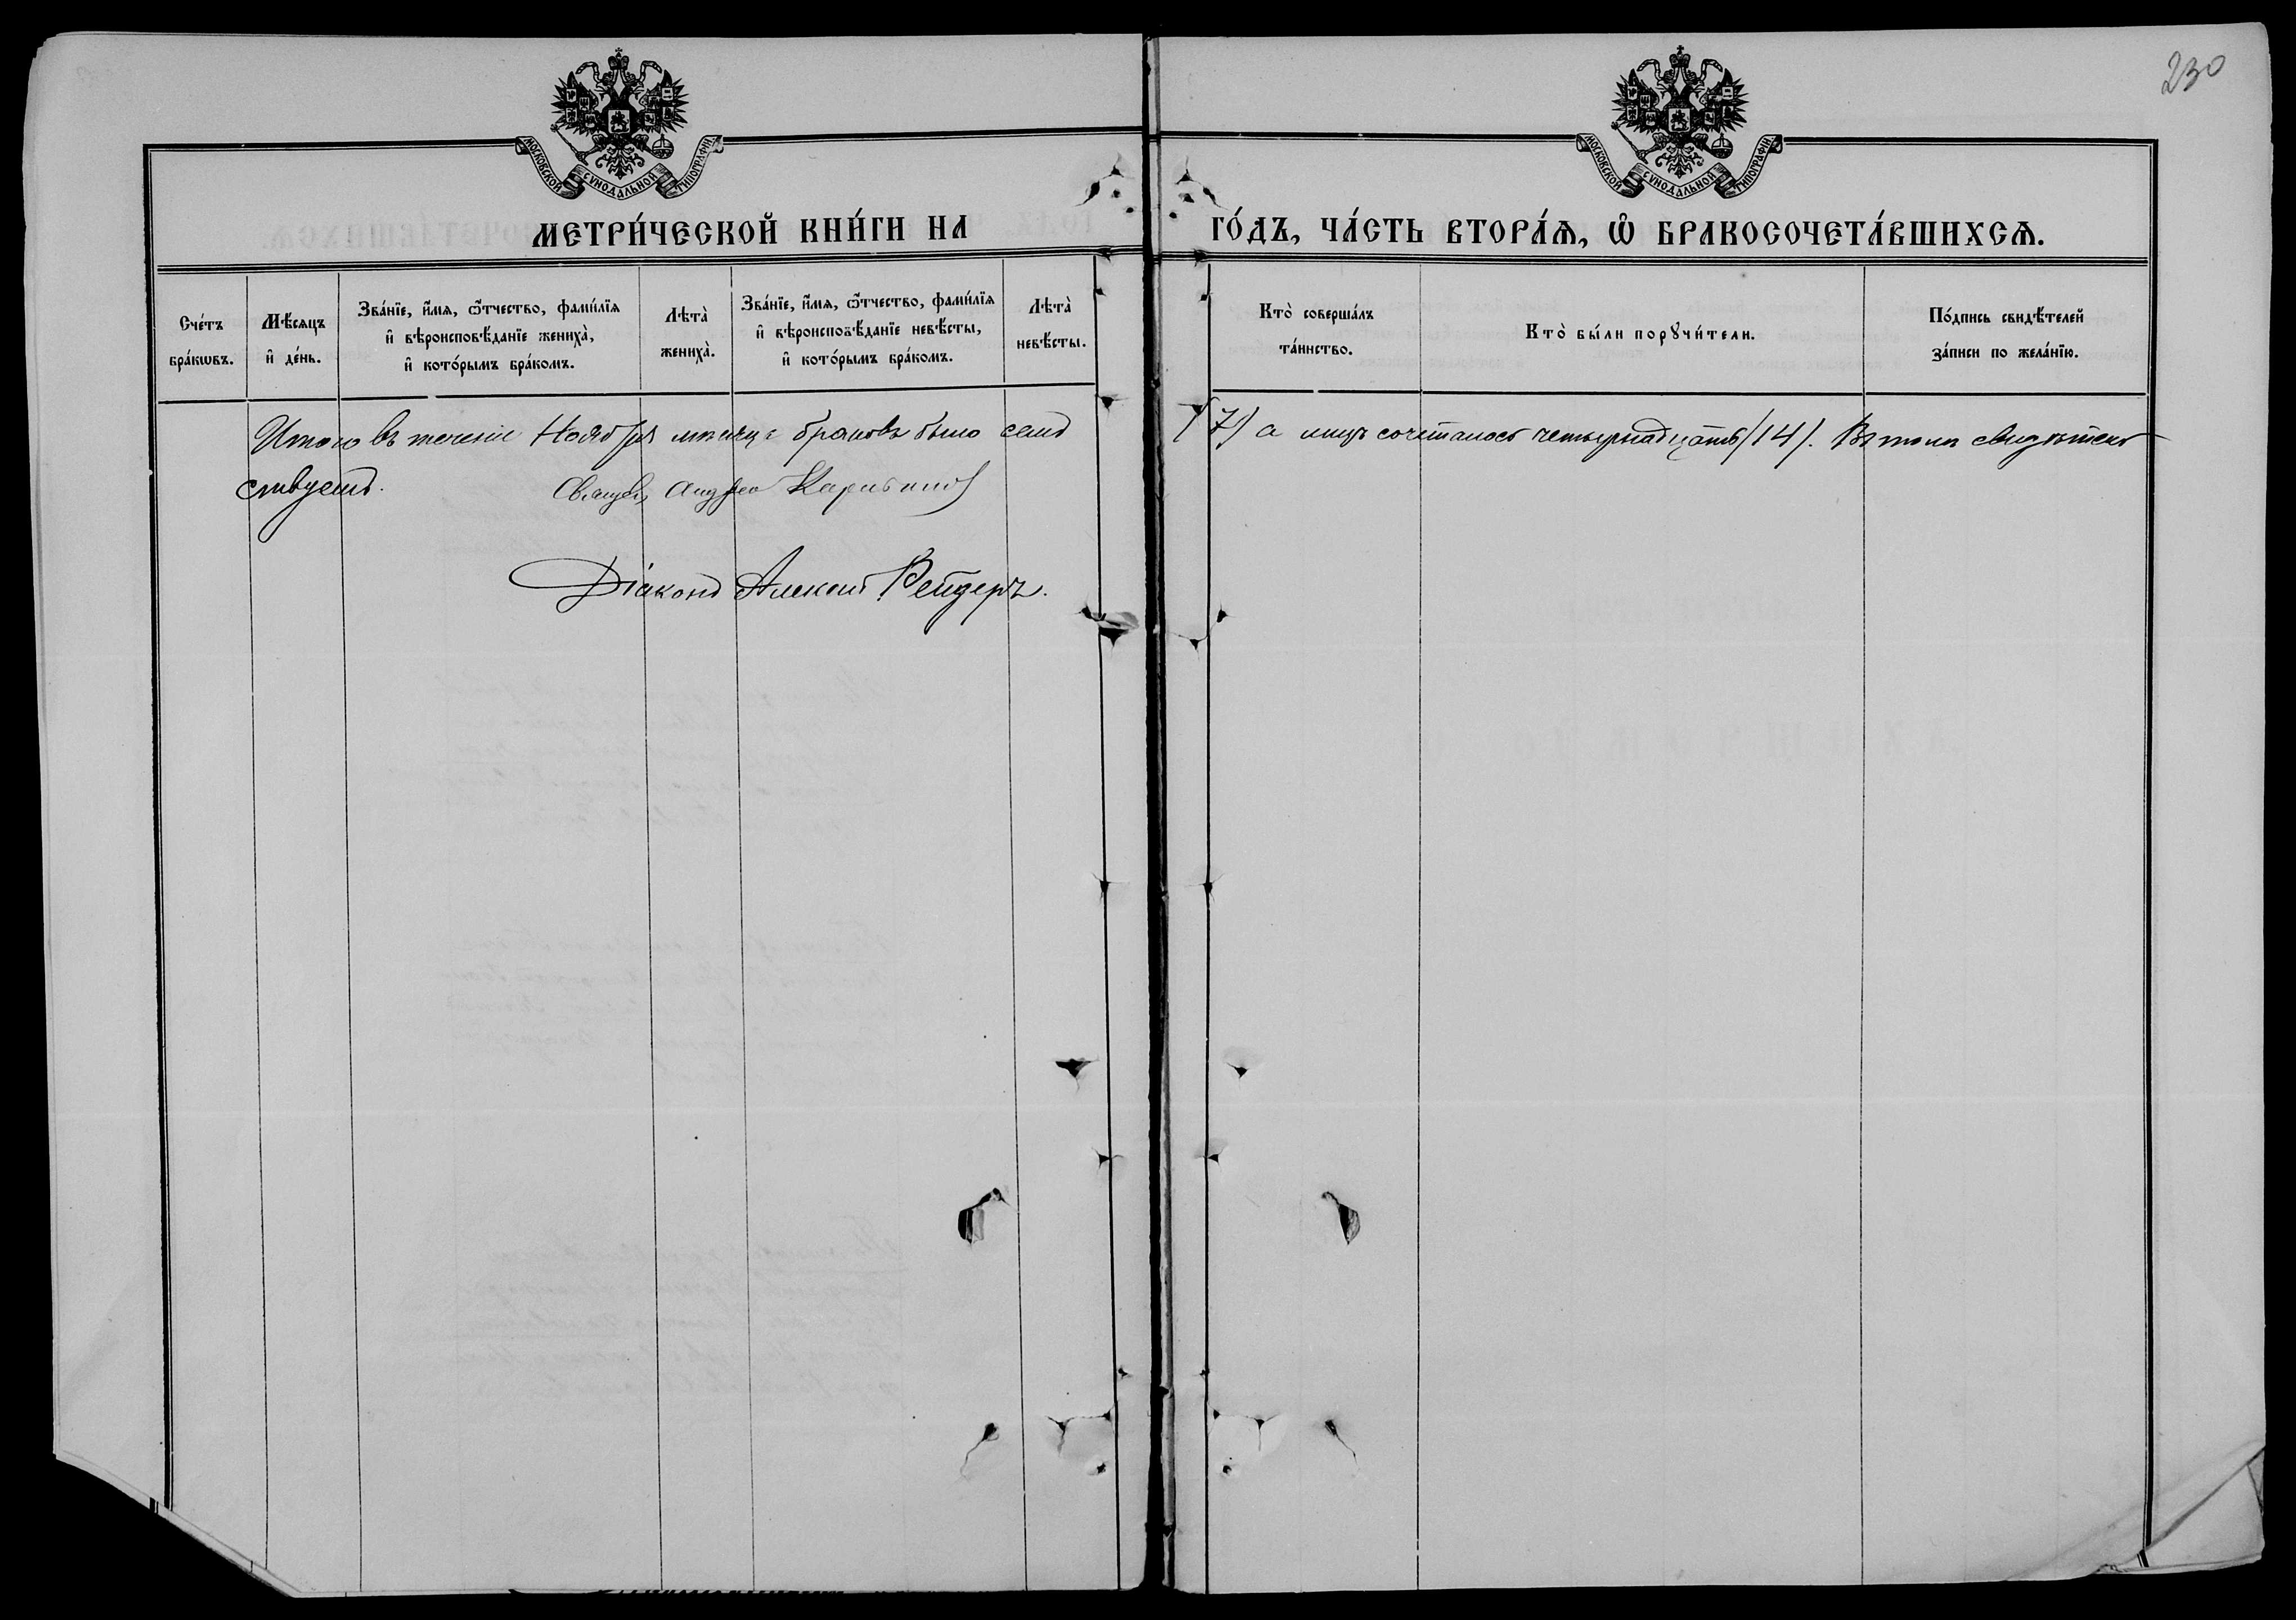 230
МОСКОВСКОЙ СѴНОДАЛЬНОЙ ТИПОГРАФІИ
МОСКОВСКОЙ СѴНОДАЛЬНОЙ ТИПОГРАФІИ
МЕТРИ́ЧЕСКОЙ КНИ́ГИ НА ГО́ДЪ, ЧА́СТЬ ВТОРА́Ѧ, Ѽ БРАКОСОЧЕТА́ВШИХСѦ.
Сче́тъ
бра́кѡвъ.
Мѣ́сѧцъ
и҆ де́нь.
Зва́нїе, и҆́мѧ, ѻ҆́тчество, фами́лїѧ
и҆ вѣроисповѣ́данїе жениха̀,
и҆ кото́рымъ бра́комъ.
Лѣта̀
жениха̀.
Зва́нїе, и҆́мѧ, ѻ҆́тчество, фами́лїѧ
и҆ вѣроисповѣ́данїе невѣ́сты,
и҆ кото́рымъ бра́комъ.
Лѣта̀
невѣ́сты.
Кто̀ соверша́лъ
та́инство.
Кто̀ бы́ли порꙋчи́тели.
По́дпись свидѣ́телей
за́писи по жела́нїю.
Итого въ теченіе Ноября мѣсяца браковъ было семь (7) а лицъ сочеталось четырнадцать (14). Въ томъ свидѣтель
ствуемъ.
Священ. Андрей
Діаконъ Алексій Рейдеръ.